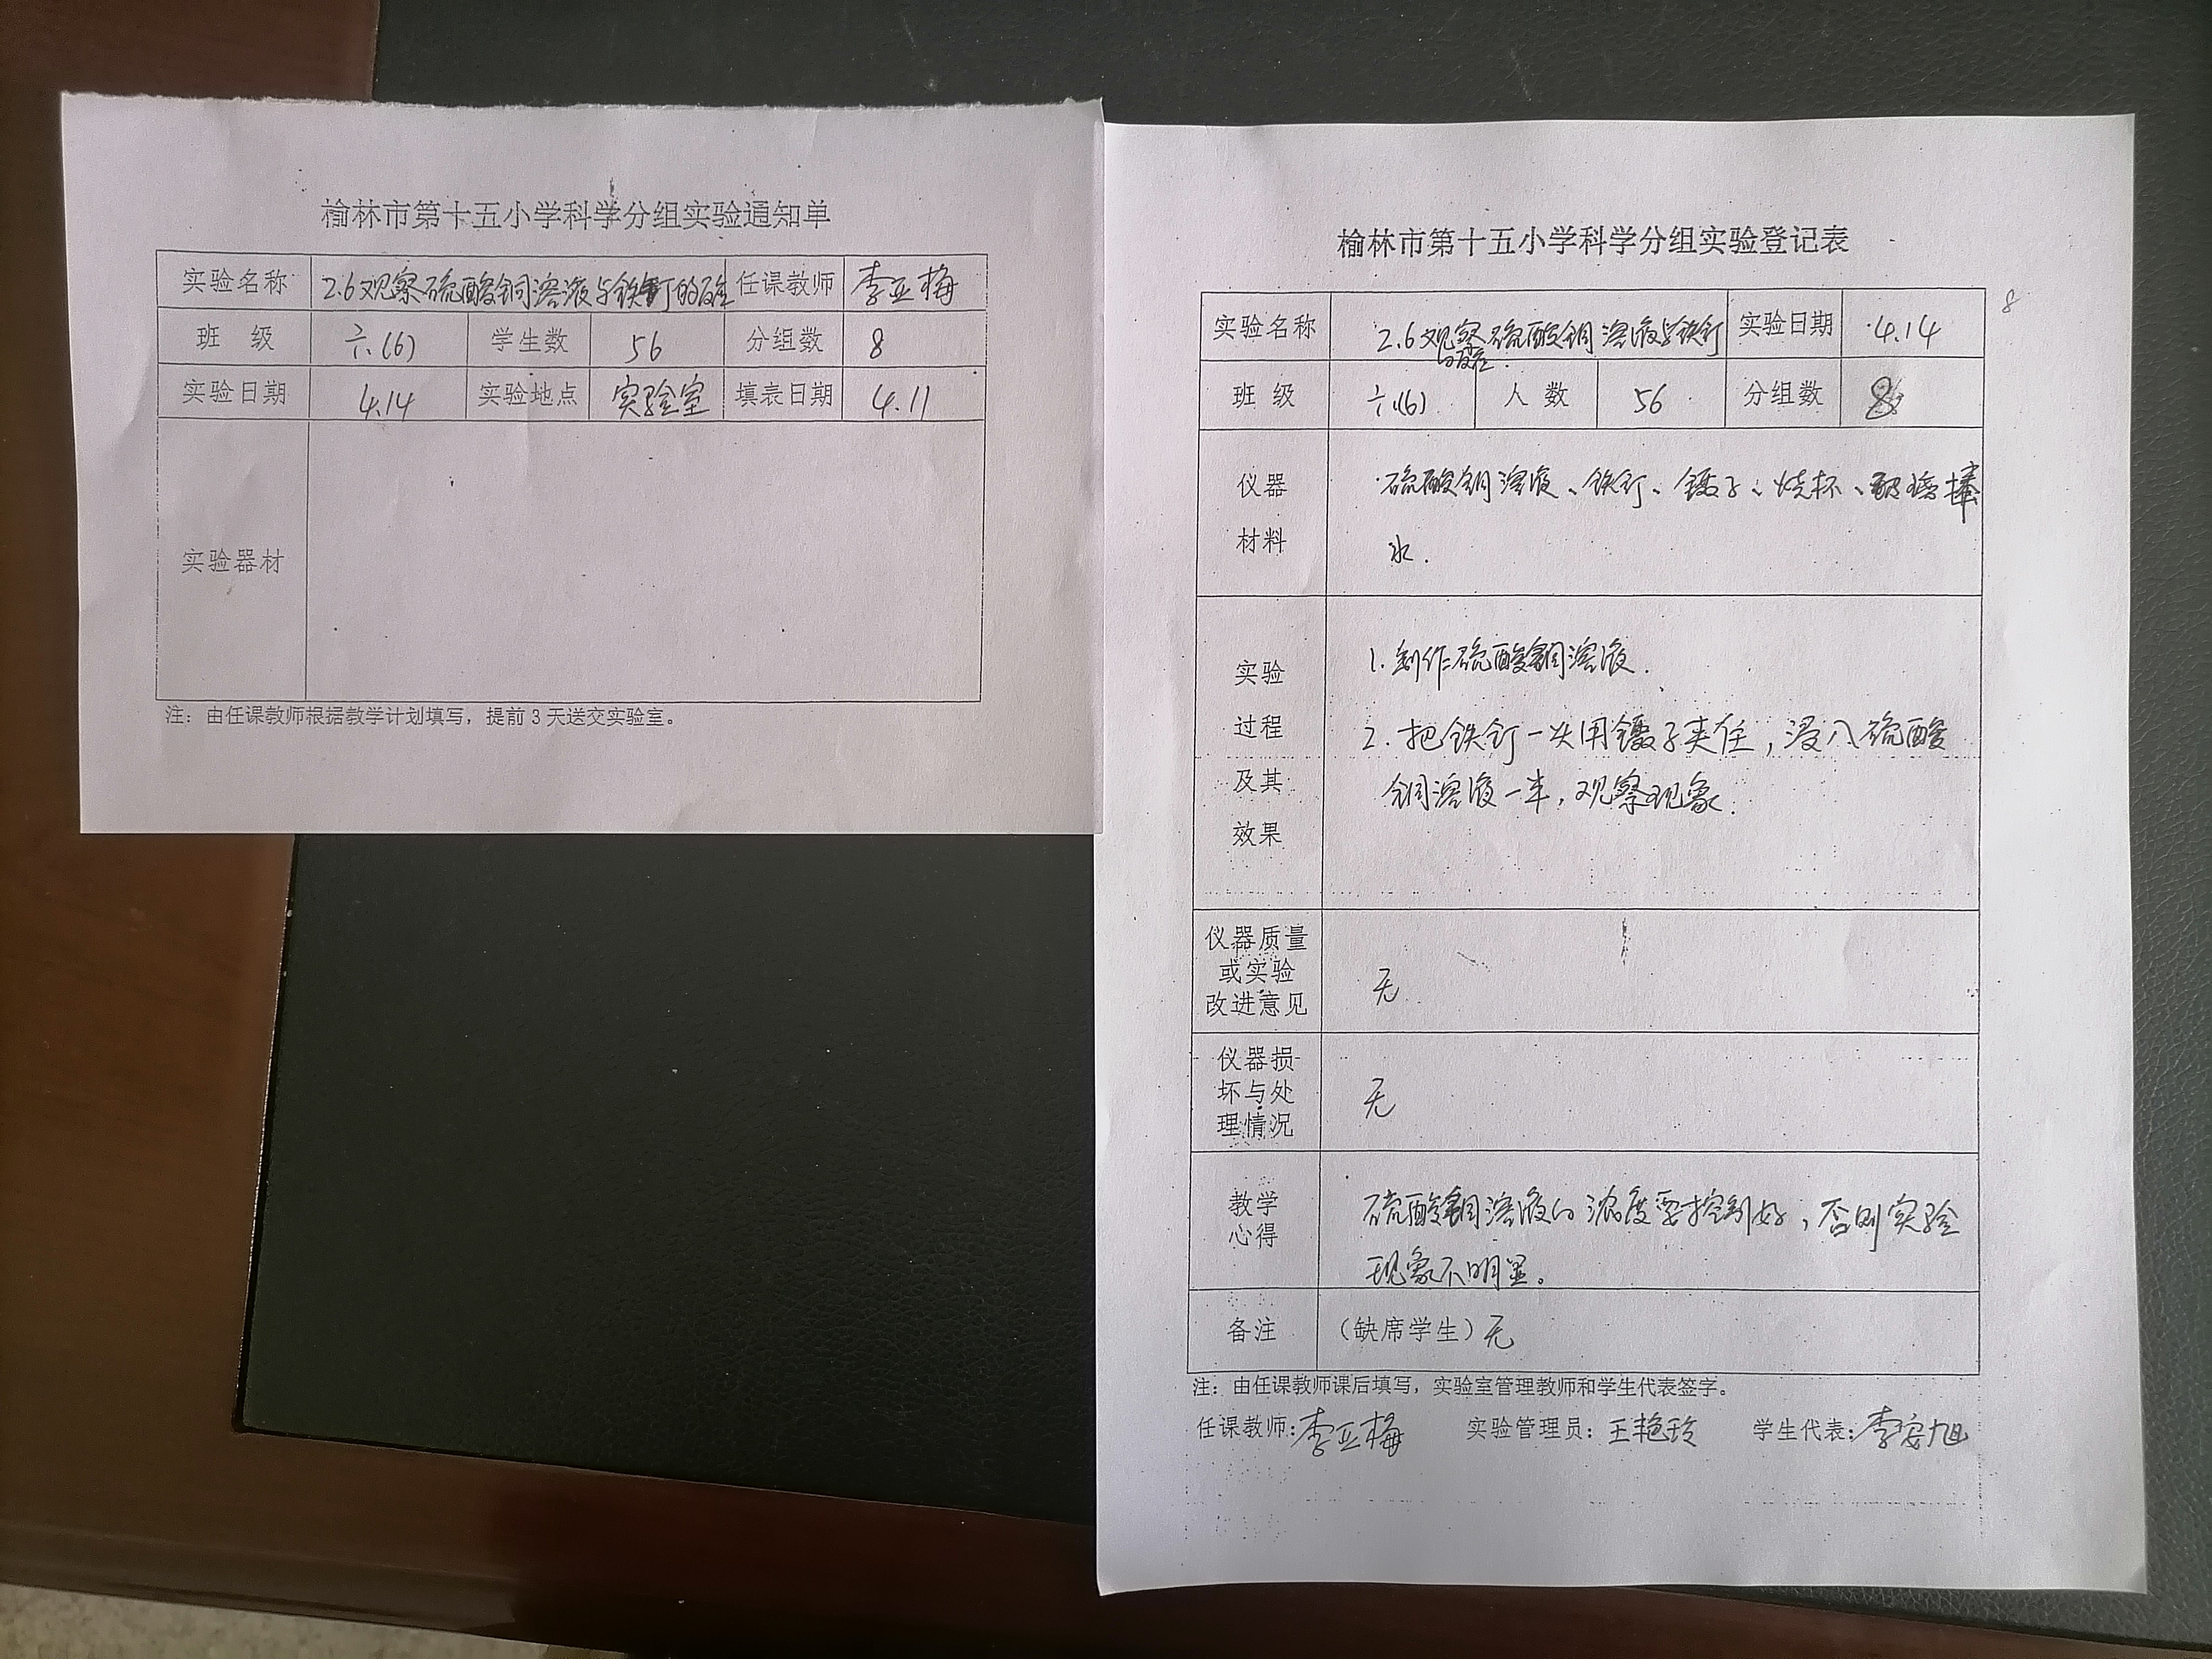 榆林市第十五小学科学分组实验通知单
实验名称 2.6观察硫酸铜溶液与铁钉的反应 任课教师 李亚梅
班 级 六.(6) 学生数 56 分组数 8
实验日期 4.14 实验地点 实验室 填表日期 4.11
实验器材
注：由任课教师根据教学计划填写，提前 3 天送交实验室。
榆林市第十五小学科学分组实验登记表
8
实验名称 2.6观察硫酸铜溶液与铁钉 实验日期 4.14
的反应.
班 级 六.(6) 人 数 56 分组数 8
仪器 硫酸铜溶液、铁钉、镊子、烧杯、玻璃棒
材料 水.
实验 1.制作硫酸铜溶液.
过程 2.把铁钉一头用镊子夹住，浸入硫酸
及其 铜溶液一半，观察现象.
效果
仪器质量
或实验 无
改进意见
仪器损
坏与处 无
理情况
教学 硫酸铜溶液的浓度要控制好，否则实验
心得 现象不明显。
备注 （缺席学生）无
注：由任课教师课后填写，实验室管理教师和学生代表签字。
任课教师：李亚梅 实验管理员：王艳玲 学生代表：李安旭